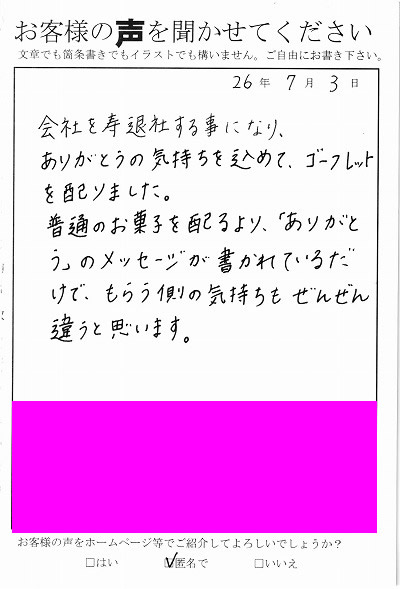 お客様の声を聞かせてください
文章でも箇条書きでもイラストでも構いません。ご自由にお書き下さい。
26年 7月 3日
会社を寿退社する事になり、
ありがとうの気持ちを込めて、ゴーフレット
を配りました。
普通のお菓子を配るより、「ありがと
う」のメッセージが書かれているだ
けで、もらう側の気持ちもぜんぜん
違うと思います。
お客様の声をホームページ等でご紹介してよろしいでしょうか？
□はい ☑匿名で □いいえ